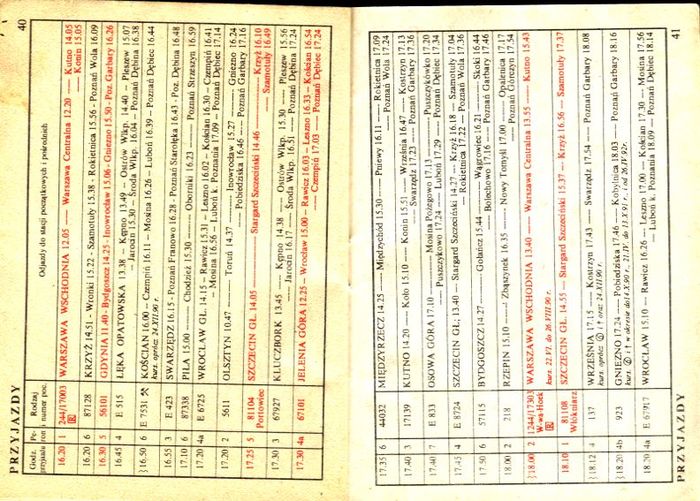 40
PRZYJAZDY
Godz. przyjazdu
Pe-ron
Rodzaj i numer poc.
Odjazdy do stacji początkowych i pośrednich
16.20 1 244/17003 R WARSZAWA WSCHODNIA 12.05 — Warszawa Centralna 12.20 — Kutno 14.05 — Konin 15.05
16.20 6 87128 KRZYŻ 14.51 - Wronki 15.22 - Szamotuły 15.38 - Rokietnica 15.56 - Poznań Wola 16.09
16.30 5 56101 GDYNIA 11.40 - Bydgoszcz 14.25 - Inowrocław 15.06 - Gniezno 15.50 - Poz. Garbary 16.26
16.45 4 E 515 ŁĘKA OPATOWSKA 13.38 — Kępno 13.49 — Ostrów Wlkp. 14.40 — Pleszew 15.07
— Jarocin 15.30 — Środa Wlkp. 16.04 — Poznań Dębina 16.38
16.50 6 E 7531 KOŚCIAN 16.00 — Czempiń 16.11 — Mosina 16.26 — Luboń 16.39 — Poznań Dębiec 16.44
kurs. oprócz 24.XII.90 r.
16.55 3 E 423 SWARZĘDZ 16.15 - Poznań Franowo 16.28 - Poznań Starołęka 16.43 - Poz. Dębina 16.48
17.10 6 87338 PIŁA 15.00 — Chodzież 15.30 — Oborniki 16.23 — Poznań Strzeszyn 16.59
17.20 4a E 6725 WROCŁAW GŁ. 14.15 — Rawicz 15.31 — Leszno 16.02 — Kościan 16.30 — Czempiń 16.41
— Mosina 16.56 — Luboń k. Poznania 17.09 — Poznań Dębiec 17.14
17.20 2 5611 OLSZTYN 10.47 — Toruń 14.37 — Inowrocław 15.27 — Gniezno 16.24
— Pobiedziska 16.46 — Poznań Garbary 17.16
17.25 5 81104 Portowiec SZCZECIN GŁ. 14.05 — Stargard Szczeciński 14.46 — Krzyż 16.10
— Szamotuły 16.49
17.30 3 67927 KLUCZBORK 13.45 — Kępno 14.38 — Ostrów Wlkp. 15.30 — Pleszew 15.56
— Jarocin 16.17 — Środa Wlkp. 16.51 — Poznań Dębina 17.24
17.30 4a 67101 JELENIA GÓRA 12.25 — Wrocław 15.00 — Rawicz 16.03 — Leszno 16.33 — Kościan 16.54
— Czempiń 17.03 — Poznań Dębiec 17.24
17.35 6 44032 MIĘDZYRZECZ 14.25 — Międzychód 15.30 — Pniewy 16.11 — Rokietnica 17.09
— Poznań Wola 17.24
17.40 3 17139 KUTNO 14.20 — Koło 15.10 — Konin 15.51 — Września 16.47 — Kostrzyn 17.13
— Swarzędz 17.23 — Poznań Garbary 17.36
17.40 7 E 833 OSOWA GÓRA 17.10 — Mosina Pożegowo 17.13 — Puszczykówko 17.20
— Puszczykowo 17.24 — Luboń 17.29 — Poznań Dębiec 17.34
17.45 4 E 8724 SZCZECIN GŁ. 13.40 — Stargard Szczeciński 14.27 — Krzyż 16.18 — Szamotuły 17.04
— Rokietnica 17.22 — Poznań Wola 17.36
17.50 6 57115 BYDGOSZCZ 14.27 — Gołańcz 15.44 — Wągrowiec 16.21 — Skoki 16.44
— Bolechowo 17.16 — Poznań Garbary 17.46
18.00 2 218 RZEPIN 15.10 — Zbąszynek 16.35 — Nowy Tomyśl 17.00 — Opalenica 17.17
— Poznań Górczyn 17.54
18.00 2 1244/17301 W-wa-Hoek R WARSZAWA WSCHODNIA 13.40 — Warszawa Centralna 13.55 — Kutno 15.43
kurs. 22.VI. do 26.VIII 90 r.
18.10 1 81108 Włókniarz SZCZECIN GŁ. 14.55 — Stargard Szczeciński 15.37 — Krzyż 16.56 — Szamotuły 17.37
18.12 4 137 WRZEŚNIA 17.15 — Kostrzyn 17.43 — Swarzędz 17.54 — Poznań Garbary 18.08
18.20 4b 923 GNIEZNO 17.24 — Pobiedziska 17.46 — Kobylnica 18.03 — Poznań Garbary 18.16
18.20 4a WROCŁAW 15.10 — Rawicz 16.26 — Leszno 17.00 — Kościan 17.30 — Mosina 17.56
— Luboń k. Poznania 18.09 — Poznań Dębiec 18.14
PRZYJAZDY
41